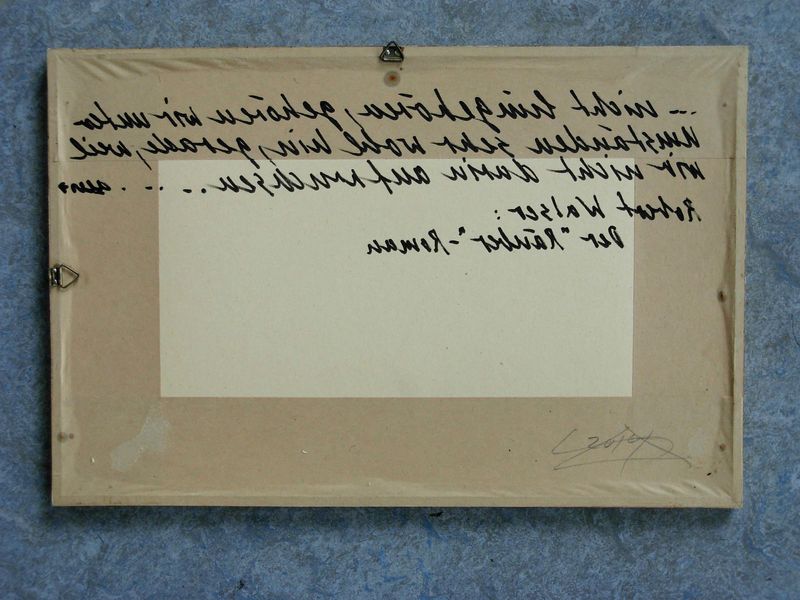 ... nicht hingehören, gehören wir unter
Umständen sehr wohl hin, gerade, weil
wir nicht darin aufwuchsen ... ...
Robert Walser:
Der "Räuber"-Roman